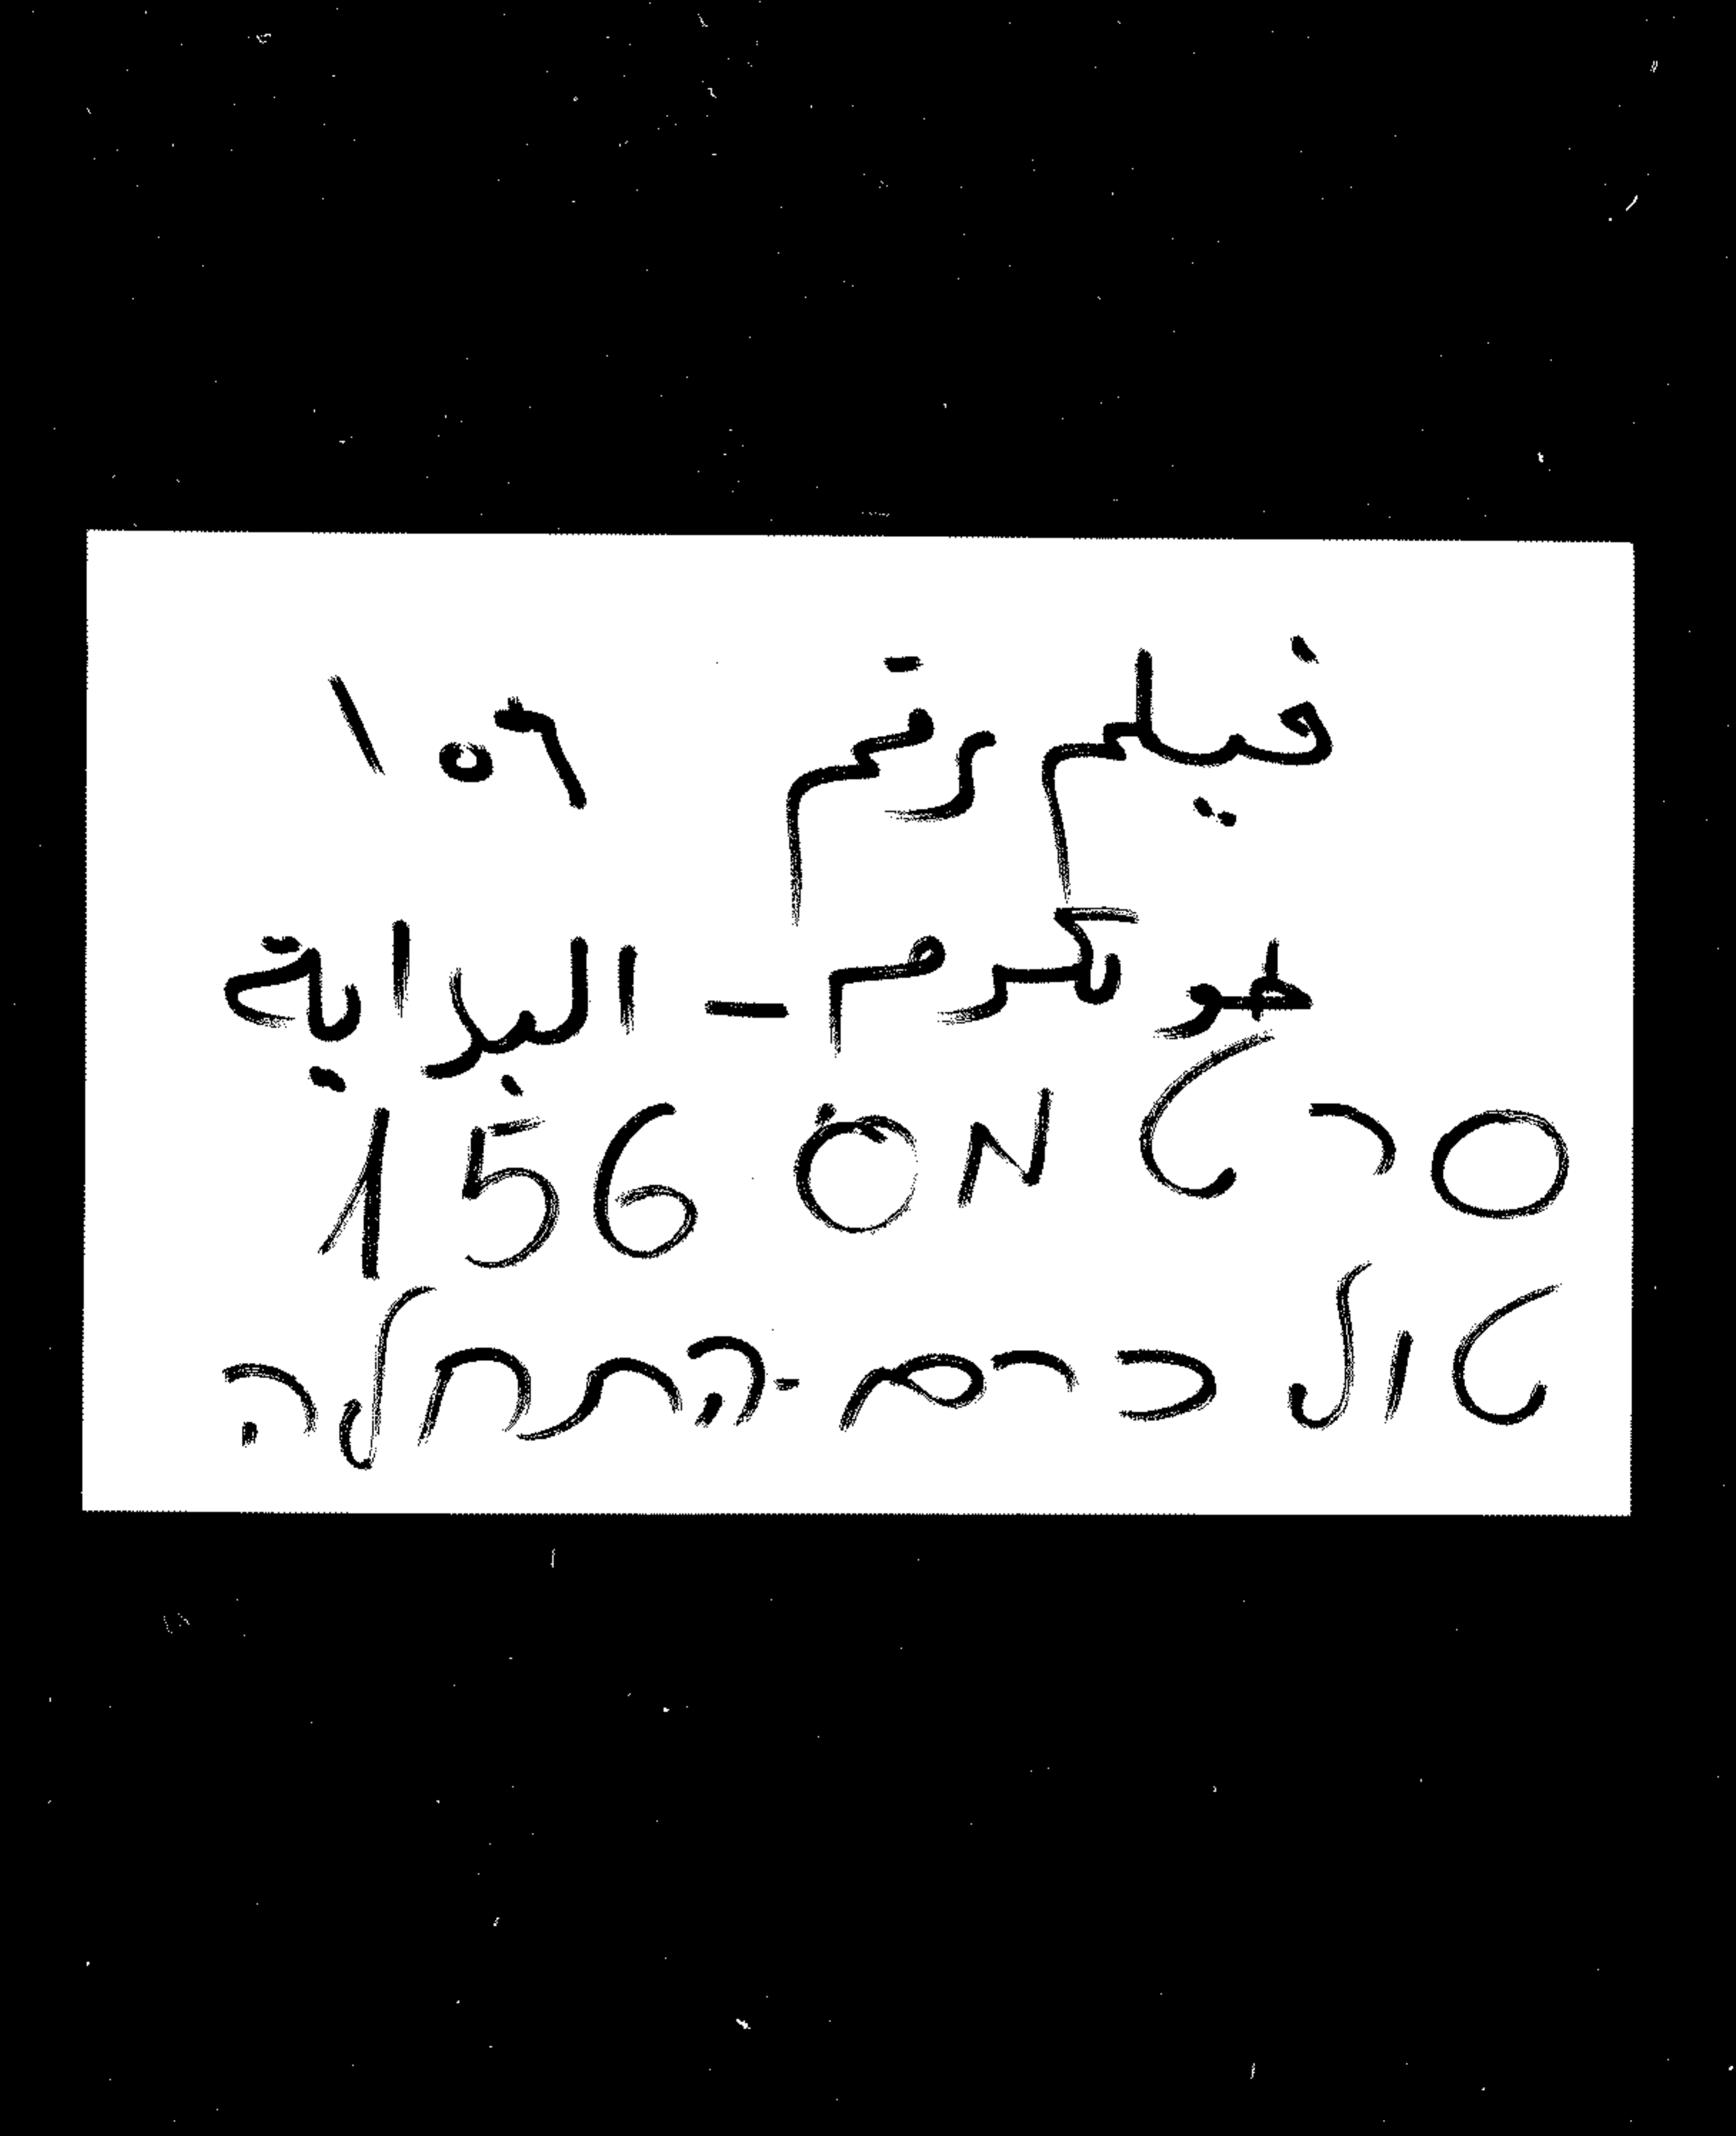 فيلم رقم ١٥٦
طولكرم - البداية
סרט מס 156
טול כרם - התחלה